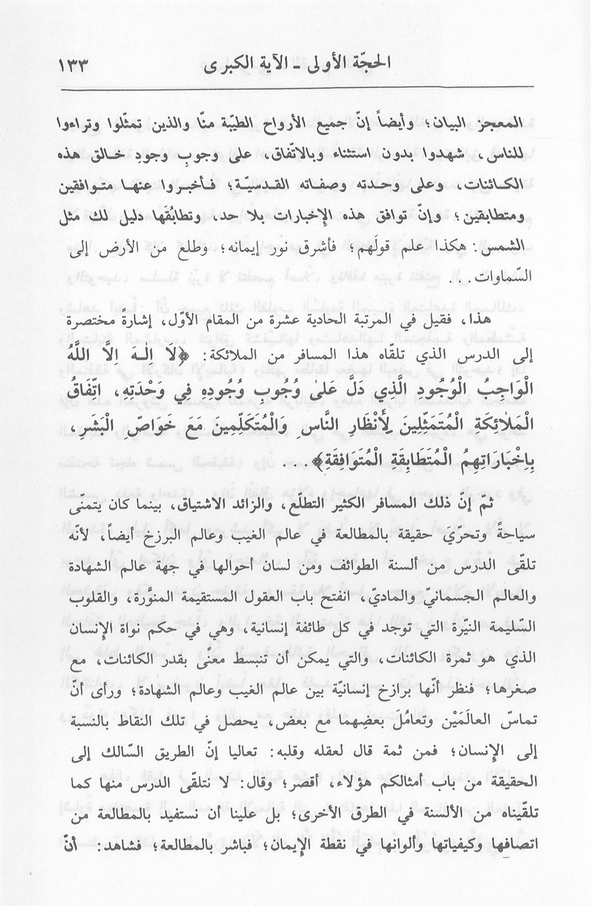 الحجّة الأولى - الآية الكبرى ١٣٣
المعجز البيان؛ وأيضاً إنّ جميع الأرواح الطيّبة منّا والذين تمثّلوا وتراءوا
للناس، شهدوا بدون استثناء وبالاتّفاق، على وجوبِ وجودِ خالق هذه
الكـائنات، وعلى وحدته وصفـاته القـدسيّـة؛ فـأخبـروا عنهـا متـوافقين
ومتطابقين؛ وإنّ توافق هذه الإخبارات بلا حد، وتطابُقَها دليل لك مثل
الشمس: هكذا علم قولَهم؛ فأشرق نور إيمانه؛ وطلع من الأرض إلى
السّماوات...
هذا، فقيل في المرتبة الحادية عشرة من المقام الأوّل، إشارةً مختصرة
إلى الدرس الذي تلقاه هذا المسافر من الملائكة: ﴿لَا اِلٰهَ اِلَّا اللَّهُ
الْوَاجِبُ الْوُجُودِ الَّذِي دَلَّ عَلىٰ وُجُوبِ وُجُودِهِ فِي وَحْدَتِهِ، اتـِّفَاقُ
الْمَلٰائِكَةِ الْمُتَمَثِّلِينَ لِأَنْظَارِ النَّاسِ وَالْمُتَكَلِّمِينَ مَعَ خَوَاصِّ الْبَشَرِ،
بِاِخْبَارَاتِهِمُ الْمُتَطَابِقَةِ الْمُتَوَافِقَةِ﴾...
ثمّ إنّ ذلك المسافر الكثير التطلّع، والزائد الاشتياق، بينما كان يتمنّى
سياحةً وتحرّيَ حقيقة بالمطالعة في عالم الغيب وعالم البرزخ أيضاً، لأنّه
تلقّى الدرس من ألسنة الطوائف ومن لسان أحوالها في جهة عالم الشهادة
والعالم الجسمانيّ والماديّ، انفتح باب العقول المستقيمة المنوَّرة، والقلوب
السّليمة النيّرة التي توجد في كل طائفة إنسانية، وهي في حكم نواة الإنسان
الذي هو ثمرة الكائنات، والتي يمكن أن تنبسط معنًى بقدر الكائنات، مع
صغرها؛ فنظر أنّها برازخ إنسانيّة بين عالم الغيب وعالم الشهادة؛ ورأى أنّ
تماسّ العالَمَيْن وتعامُلَ بعضِهما مع بعض، يحصل في تلك النقاط بالنسبة
إلى الإنسان؛ فمن ثمة قال لعقله وقلبه: تعاليا إنّ الطريق السّالك إلى
الحقيقة من باب أمثالكم هؤلاء، أقصر؛ وقال: لا نتلقّى الدرس منها كما
تلقّيناه من الألسنة في الطرق الأخرى؛ بل علينا أن نستفيد بالمطالعة من
اتصافها وكيفياتها وألوانها في نقطة الإيمان؛ فباشر بالمطالعة؛ فشاهد: أنّ